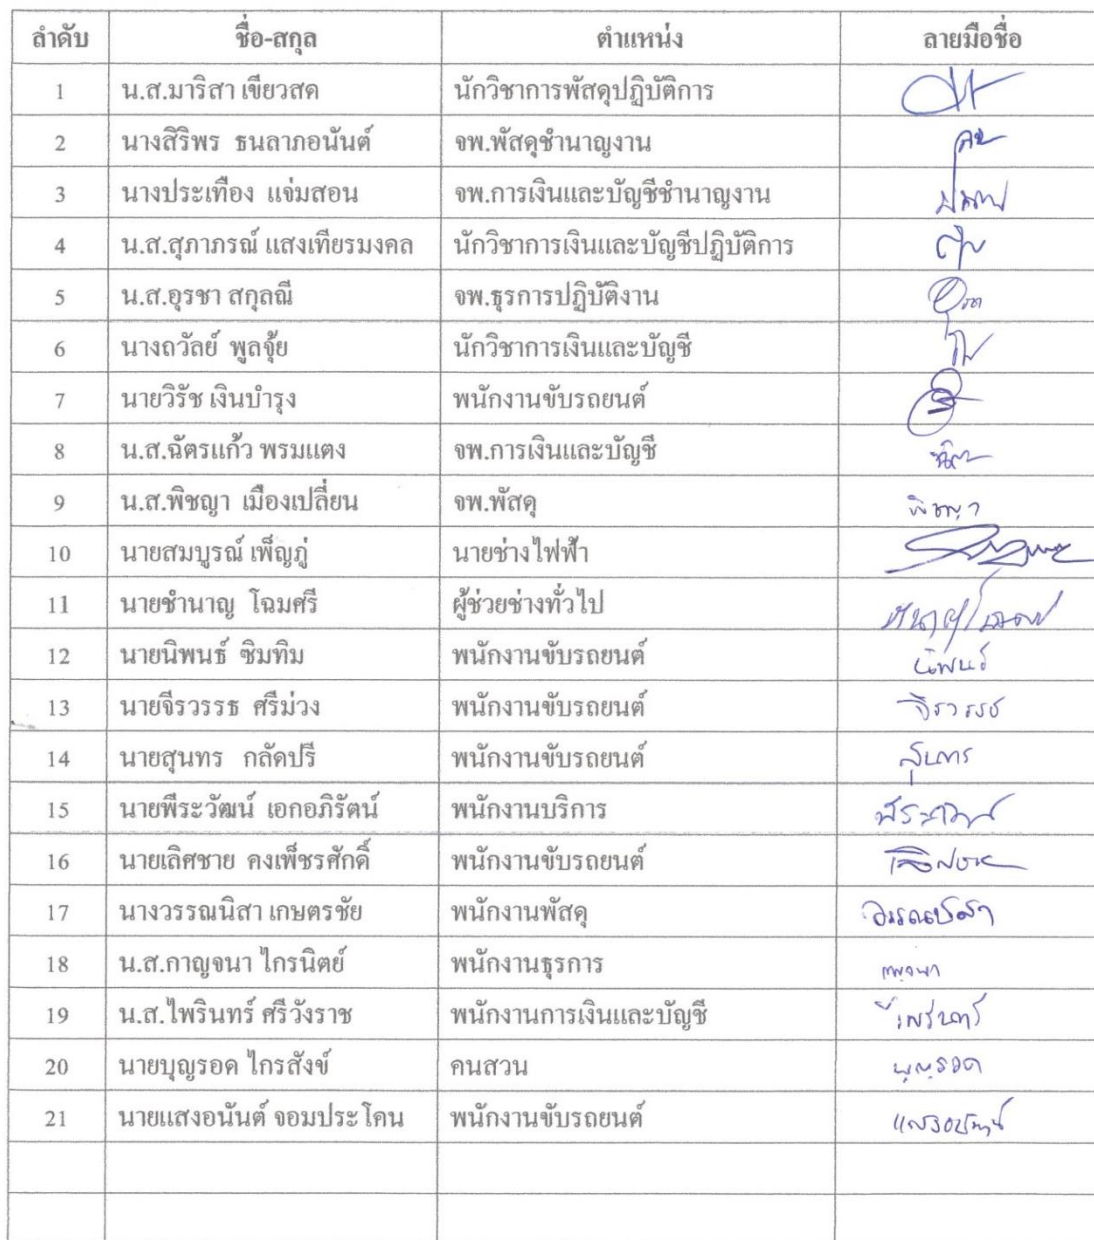 ลำดับ ชื่อ-สกุล ตำแหน่ง ลายมือชื่อ
1 น.ส.มาริสา เขียวสด นักวิชาการพัสดุปฏิบัติการ
2 นางสิริพร ธนลาภอนันต์ จพ.พัสดุชำนาญงาน
3 นางประเทือง แจ่มสอน จพ.การเงินและบัญชีชำนาญงาน
4 น.ส.สุภาภรณ์ แสงเทียรมงคล นักวิชาการเงินและบัญชีปฏิบัติการ
5 น.ส.อุรชา สกุลณี จพ.ธุรการปฏิบัติงาน
6 นางถวัลย์ พูลจุ้ย นักวิชาการเงินและบัญชี
7 นายวิรัช เงินบำรุง พนักงานขับรถยนต์
8 น.ส.ฉัตรแก้ว พรมแตง จพ.การเงินและบัญชี
9 น.ส.พิชญา เมืองเปลี่ยน จพ.พัสดุ พิชญา
10 นายสมบูรณ์ เพ็ญภู่ นายช่างไฟฟ้า
11 นายชำนาญ โฉมศรี ผู้ช่วยช่างทั่วไป
12 นายนิพนธ์ ซิมทิม พนักงานขับรถยนต์ นิพนธ์
13 นายจีรวรรธ ศรีม่วง พนักงานขับรถยนต์ จีรวรรธ
14 นายสุนทร กลัดปรี พนักงานขับรถยนต์ สุนทร
15 นายพีระวัฒน์ เอกอภิรัตน์ พนักงานบริการ พีระวัฒน์
16 นายเลิศชาย คงเพ็ชรศักดิ์ พนักงานขับรถยนต์
17 นางวรรณนิสา เกษตรชัย พนักงานพัสดุ
18 น.ส.กาญจนา ไกรนิตย์ พนักงานธุรการ กาญจนา
19 น.ส.ไพรินทร์ ศรีวังราช พนักงานการเงินและบัญชี ไพรินทร์
20 นายบุญรอด ไกรสังข์ คนสวน บุญรอด
21 นายแสงอนันต์ จอมประโคน พนักงานขับรถยนต์ แสงอนันต์